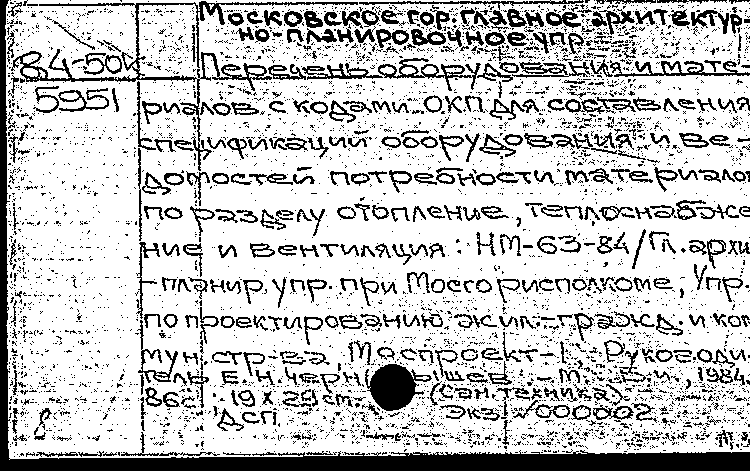 Московское гор. главное архитектур-
но-планировочное упр.
84-50к Перечень оборудования и мате-
5951 риалов с кодами ОКП для составления
спецификаций оборудования и ве-
домостей потребности материалов
по разделу отопление, теплоснабже
ние и вентиляция: НМ-63-84/Гл. архи
-планир. упр. при Мосгорисполкоме, Упр.
по проектированию жил.-гражд. и ком
мун. стр-ва, Моспроект-1; Руководи-
тель Е.Н. Чернышев. - М.: Б.и., 1984.
86с.; 19 х 29 см. - (Сан. техника).
ДСП Экз. №000002
8